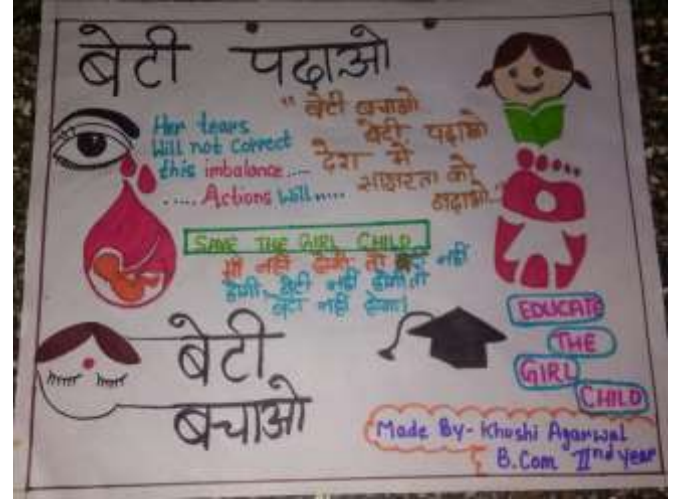 बेटी पढाओ
Her tears
Will not correct
this imbalance....
..... Actions Will.....
"बेटी बचाओ
बेटी पढाओ
देश में
साक्षरता को
बढाओ..."
SAVE THE GIRL CHILD
माँ नहीं होगी तो नहीं
होगी, बेटी नहीं होगी तो
नहीं होगा!
बेटी
बचाओ
EDUCATE
THE
GIRL
CHILD
Made By- Khushi Agarwal
B.Com IInd year